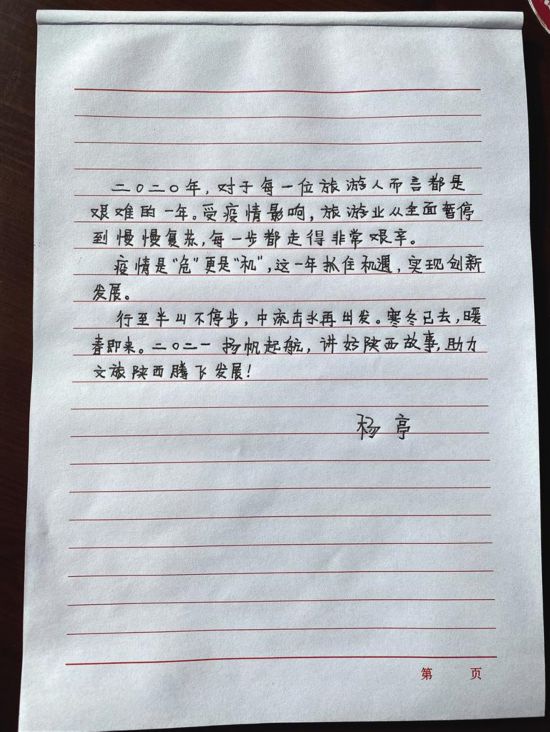 二〇二〇年，对于每一位旅游人而言都是
艰难的一年。受疫情影响，旅游业从全面暂停
到慢慢复苏，每一步都走得非常艰辛。
疫情是“危”更是“机”，这一年抓住机遇，实现创新
发展。
行至半山不停步，中流击水再出发。寒冬已去，暖
春即来。二〇二一扬帆起航，讲好陕西故事，助力
文旅陕西腾飞发展！
杨亭
第 页